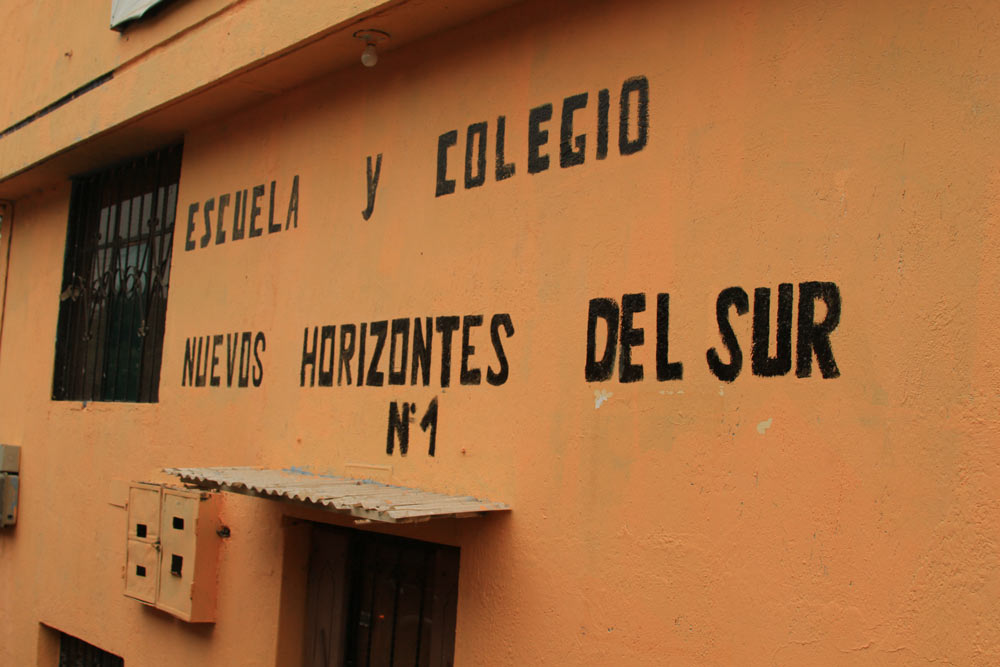 ESCUELA y COLEGIO
NUEVOS HORIZONTES DEL SUR
N° 1